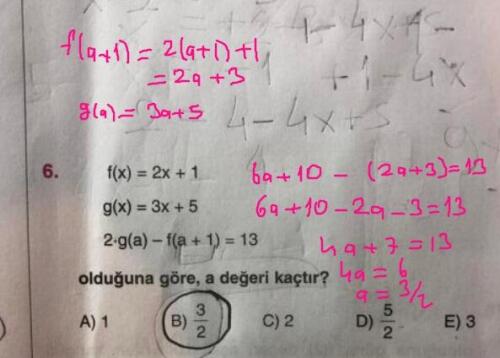 f(a+1) = 2(a+1)+1
= 2a+3
g(a) = 3a+5
4-4x+5
6. f(x) = 2x + 1
6a+10 - (2a+3)=13
g(x) = 3x + 5
6a+10-2a-3=13
2·g(a) – f(a + 1) = 13
4a+7=13
olduğuna göre, a değeri kaçtır?
4a = 6
a = 3/2
A) 1 B) 3/2 C) 2 D) 5/2 E) 3